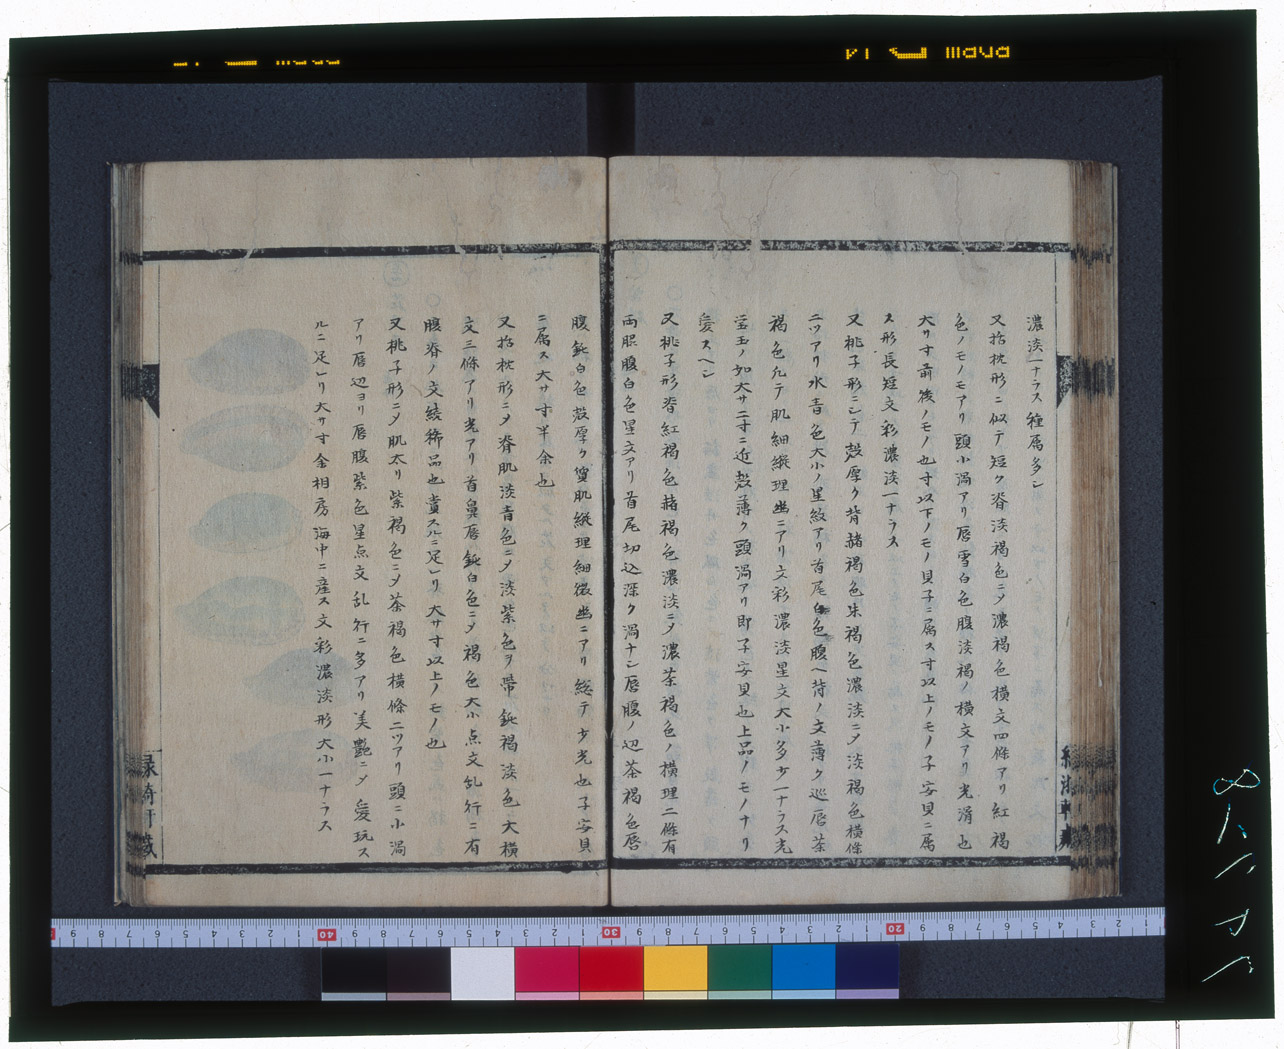 濃淡一ナラス種属多シ
又括枕形ニ似テ短ク脊淡褐色ニメ濃褐色横文四條アリ紅褐
色ノモノモアリ頭小渦アリ唇雪白色腹淡褐ノ横文アリ光滑也
大サ寸前後ノモノ也寸以下ノモノ貝子ニ属ス寸以上ノモノ子安貝ニ属
ス形長短文彩濃淡一ナラス
又桃子形ニシテ殻厚ク背赭褐色朱褐色濃淡ニメ淡褐色横條
二ツアリ水青色大小ノ星紋アリ首尾白色腹ヘ背ノ文薄ク巡唇茶
褐色凢テ肌細縦理幽ニアリ文彩濃淡星文大小多少一ナラス光
宝玉ノ如大サ二寸ニ近殻薄ク頭渦アリ即子安貝也上品ノモノナリ
愛スヘシ
又桃子形脊紅褐色赭褐色濃淡ニメ濃茶褐色ノ横理二條有
両眼腹白色星文アリ首尾切込深ク渦ナシ唇腹ノ辺茶褐色唇
腹鈍白色殻厚ク質肌縦理細微幽ニアリ総テ少光也子安貝
ニ属ス大サ寸半余也
又括枕形ニメ脊肌淡青色ニメ淡紫色ヲ帯鈍褐淡色大横
文三條アリ光アリ首鼻唇鈍白色ニメ褐色大小点文乱行ニ有
腹脊ノ文綾稀品也賞スルニ足レリ大サ寸以上ノモノ也
又桃子形ニメ肌太リ紫褐色ニメ茶褐色横條二ツアリ頭ニ小渦
アリ唇辺ヨリ唇腹紫色星点文乱行ニ多アリ美艶ニメ愛玩ス
ルニ足レリ大サ寸余相房海中ニ産ス文彩濃淡形大小一ナラス
40
30
20